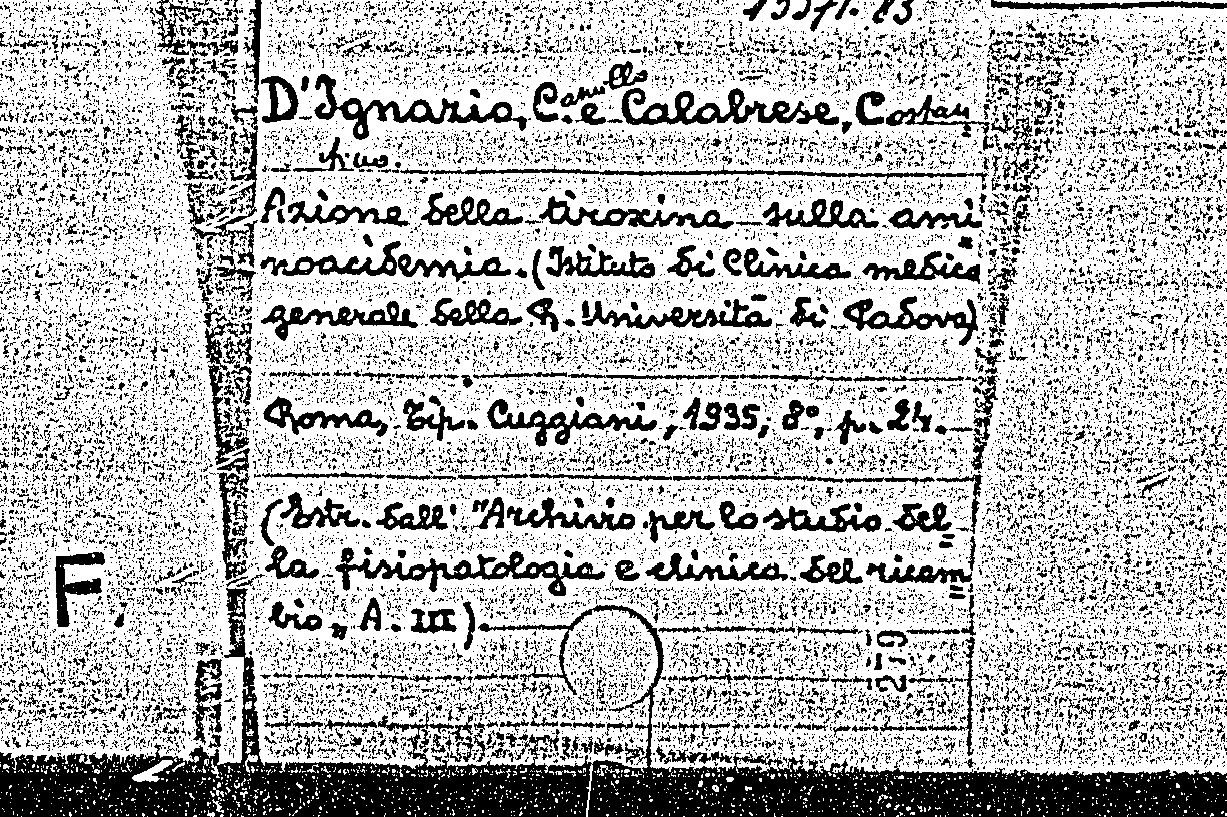 D'Ignazio, Camillo e Calabrese, Costan=
tino.
Azione della tiroxina sulla ami=
noacidemia. (Istituto di Clinica medica
generale della R. Università di Padova)
Roma, Tip. Cuggiani, 1935, 8°, p. 24.
(Estr. dall' "Archivio per lo studio del=
la fisiopatologia e clinica del ricam=
bio„ A. III).
F.
219